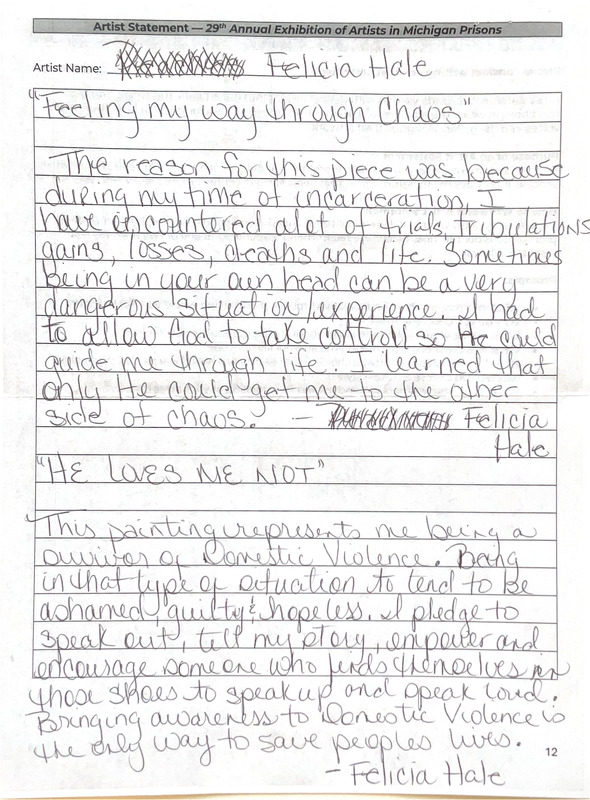 Artist Statement — 29th Annual Exhibition of Artists in Michigan Prisons
Artist Name: Felicia Hale
"Feeling my way through Chaos"
The reason for this piece was because
during my time of incarceration, I
have encountered alot of trials, tribulations
gains, losses, deaths and life. Sometimes
being in your own head can be a very
dangerous situation/experience. I had
to allow God to take controll so He could
guide me through life. I learned that
only He could get me to the other
side of chaos. — Felicia
Hale
"HE LOVES ME NOT"
This painting represents me being a
survivor of Domestic Violence. Being
in that type of situation to tend to be
ashamed, guilty & hopeless. I pledge to
speak out, tell my story, empower and
encourage someone who finds themselves in
those shoes to speak up and speak loud.
Bringing awareness to Domestic Violence is
the only way to save peoples lives.
12
- Felicia Hale